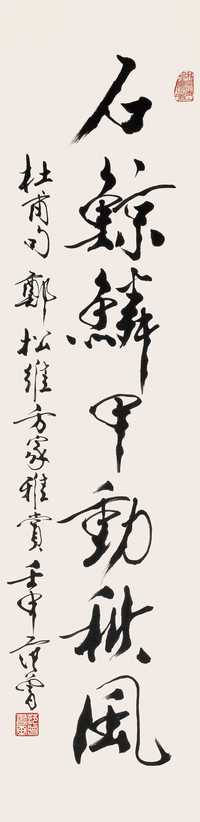 石鯨鱗甲動秋風
杜甫句 鄭松維方家雅賞 壬申 范曾